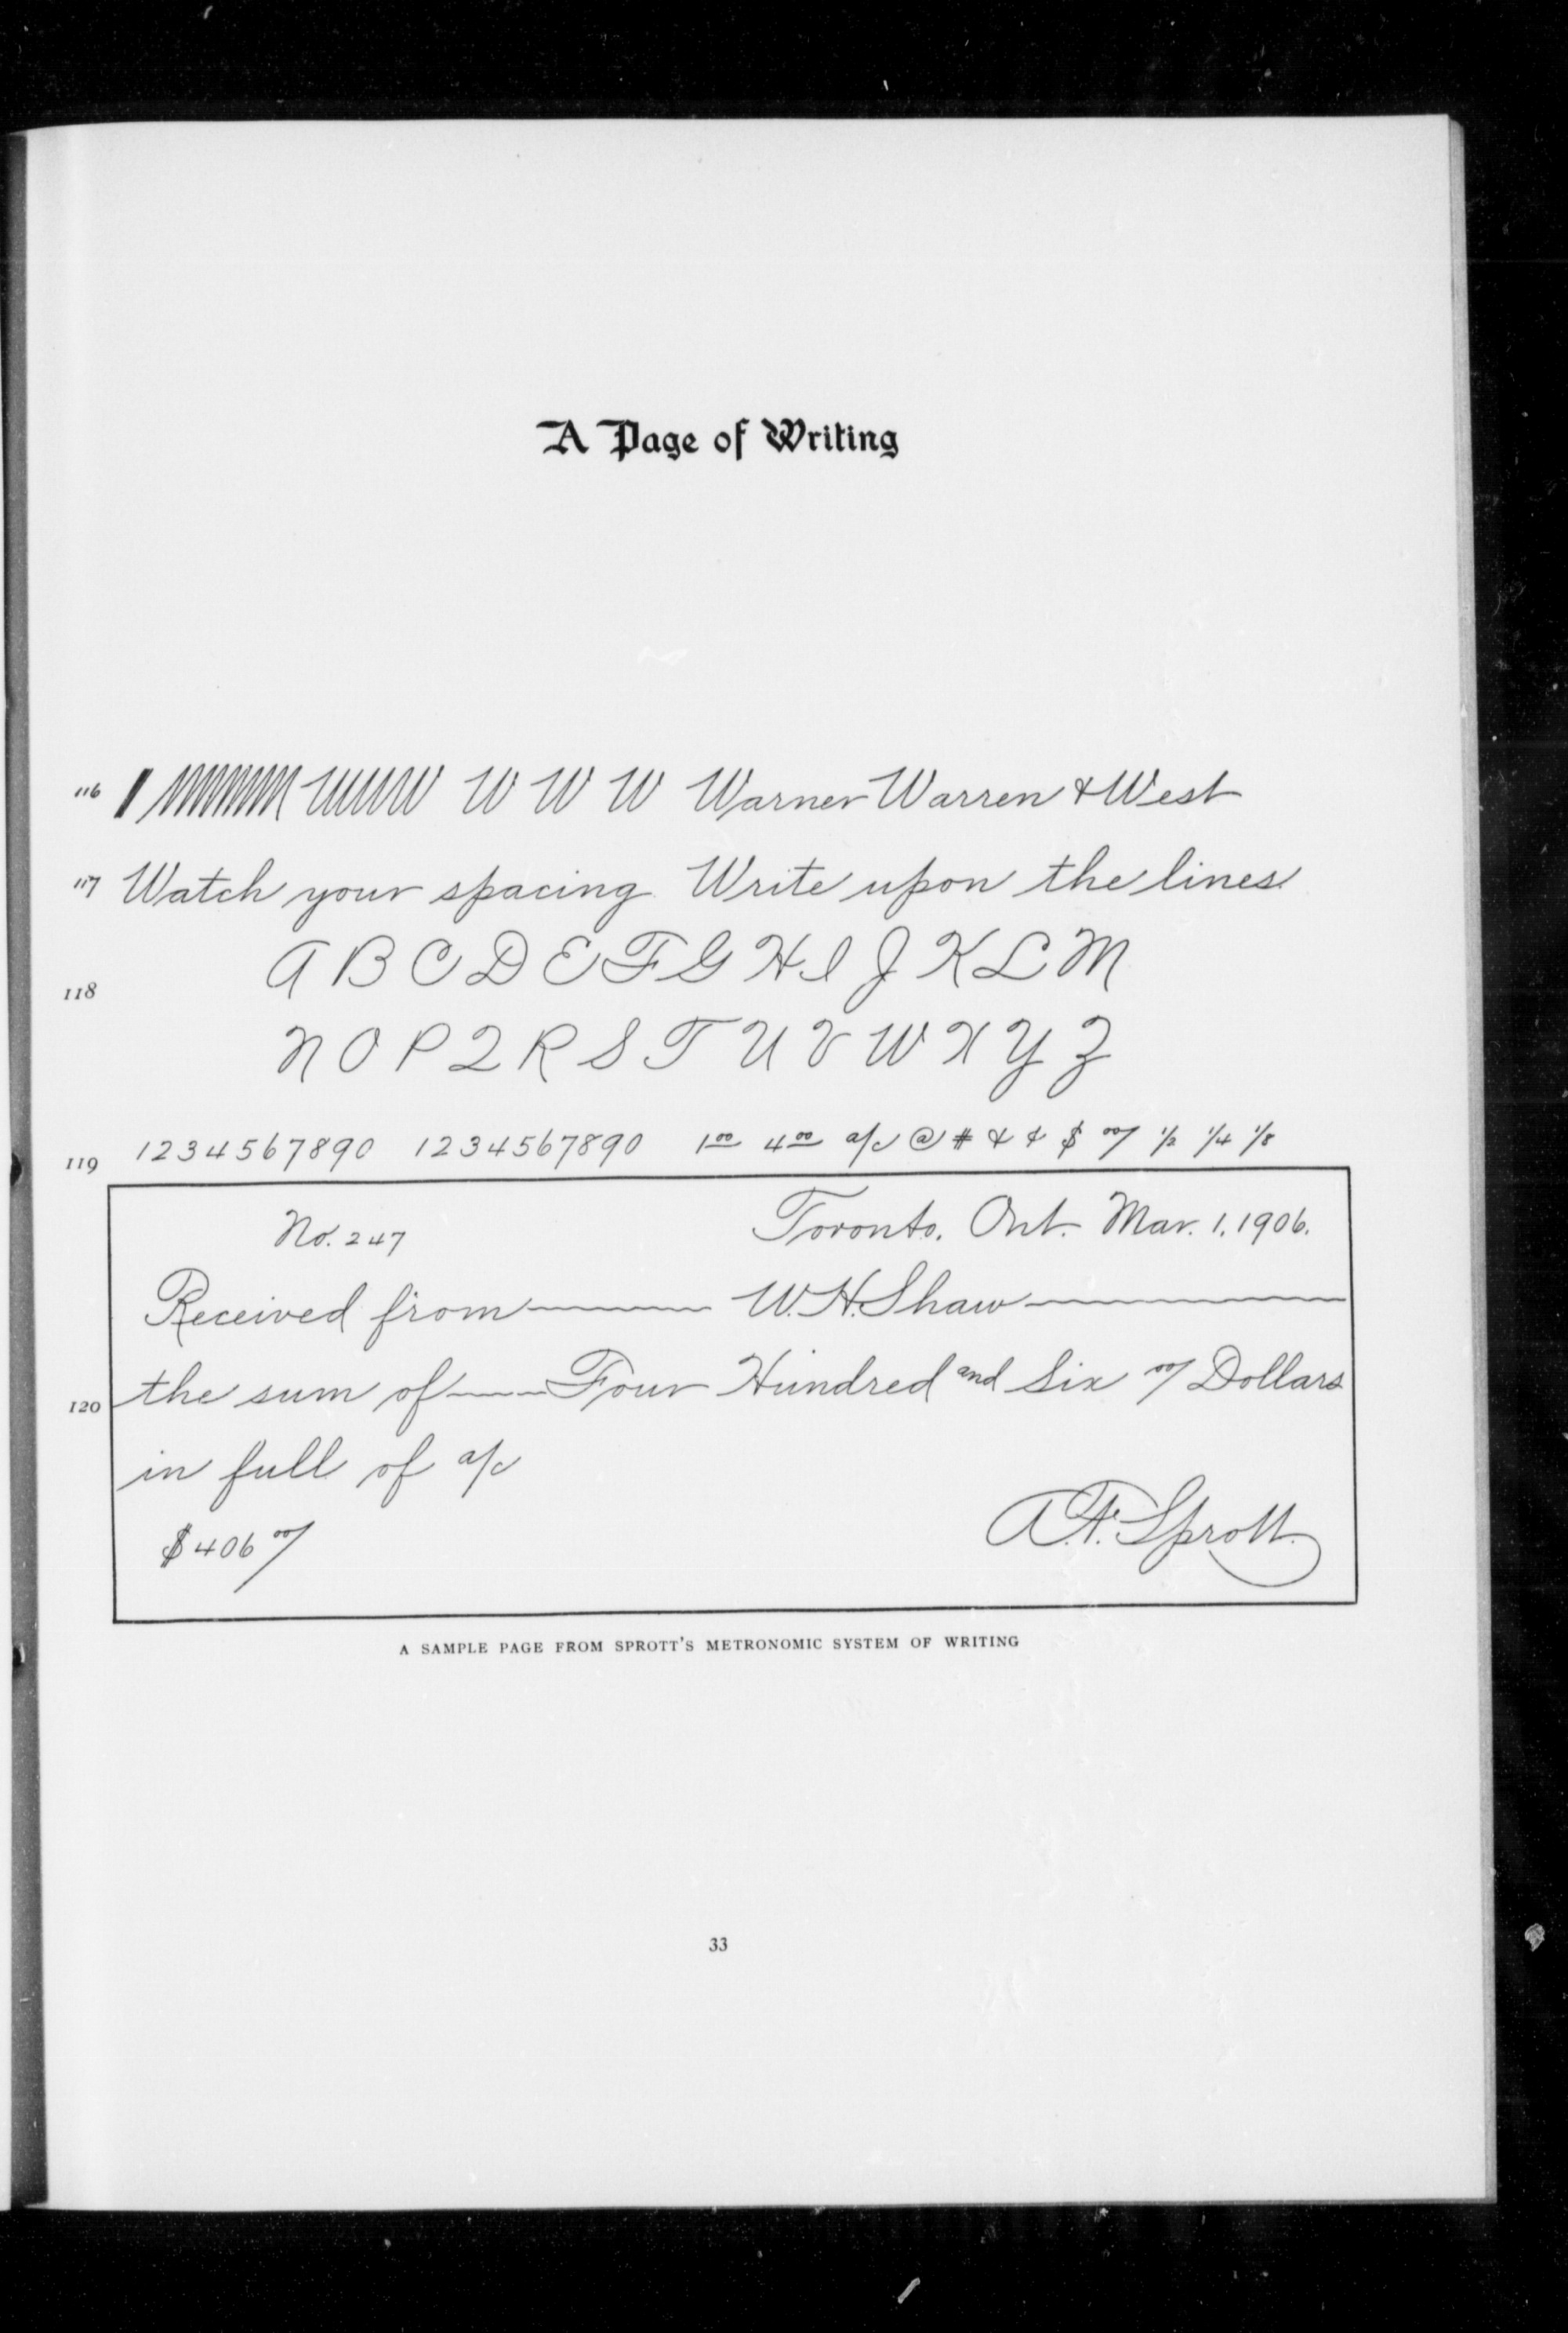 A Page of Writing
116 W W W Warner Warren & West
117 Watch your spacing Write upon the lines.
A B C D E F G H I J K L M
118
N O P Q R S T U V W X Y Z
119 1234567890 1234567890 1 00 4 00 a/c @ # & ¢ $ 00/ 1/2 1/4 1/8
No. 247 Toronto, Ont. Mar. 1, 1906.
Received from W. H. Shaw
120 the sum of Four Hundred and Six 00/ Dollars
in full of a/c
$406 00/ A. F. Sprott.
A SAMPLE PAGE FROM SPROTT'S METRONOMIC SYSTEM OF WRITING
33